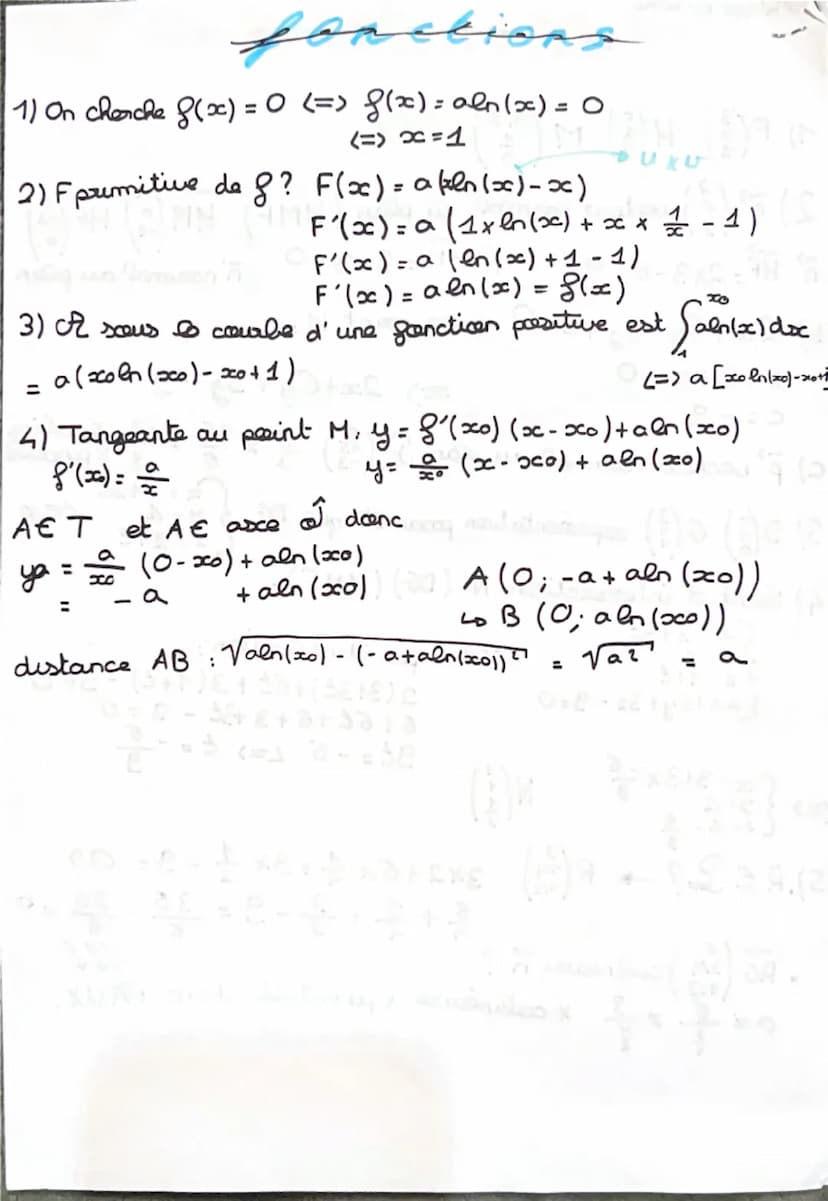 fonctions
1) On cherche f(x) = 0 <=> f(x) = aln(x) = 0
<=> x = 1
U x U
2) F primitive de f ? F(x) = a(xln(x) - x)
F'(x) = a (1 x ln(x) + x x 1/x - 1)
F'(x) = a (ln(x) + 1 - 1)
F'(x) = a ln(x) = f(x)
3) A sous la courbe d'une fonction positive est ∫₁^x0 aln(x) dx
= a(x0ln(x0) - x0 + 1) <=> a [x0 ln(x0) - x0 + 1
4) Tangeante au point M : y = f'(x0) (x - x0) + a ln(x0)
f'(x) = a/x y = a/x0 (x - x0) + aln(x0)
A ∈ T et A ∈ axe oj donc
ya = a/x0 (0 - x0) + aln(x0)
= - a + aln(x0) A (0 ; -a + aln(x0))
↳ B (0; aln(x0))
distance AB : √aln(x0) - (-a + aln(x0))² = √a² = a